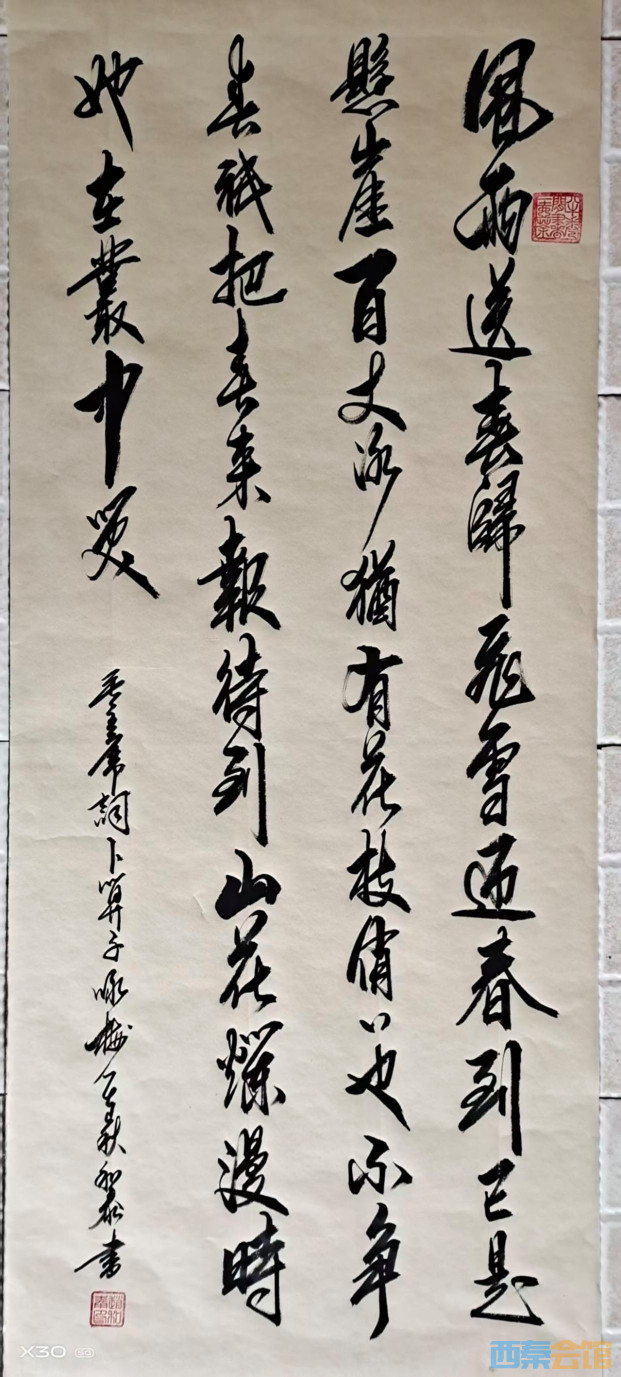 風雨送春歸飛雪迎春到已是
懸崖百丈冰猶有花枝俏俏也不爭
春祇把春來報待到山花爛漫時
她在叢中笑
毛主席詞卜算子咏梅 秋 書
X30 5G
西秦会馆